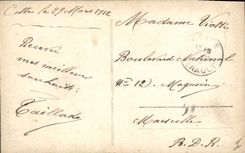 Cette le 29 Mars 1912
Recevez
mes meilleurs
souhaits
Taillade
Madame Viotti
Boulevard National
No 12) Magasin
Marseille
B.D.R.